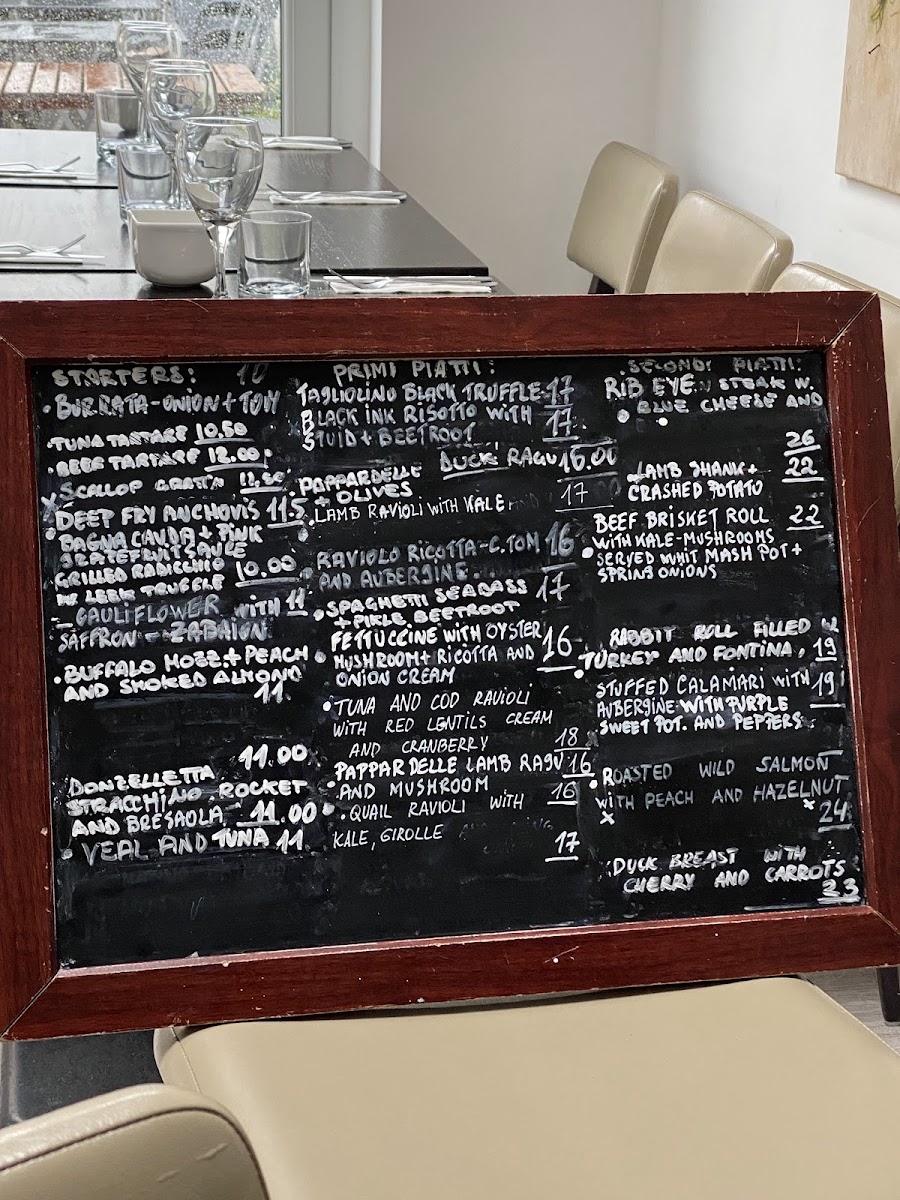 STARTERS: 10
BURRATA-ONION+TOM
TUNA TARTARE 10.50
BEEF TARTARE 12.00
SCALLOP GRATIN
DEEP FRY ANCHOVIS 11.5
BAGNA CAUDA + PINK
GRATEFRUIT SAUCE
GRILLED RADICCHIO
W LEEK TRUFFLE 10.00
CAULIFLOWER WITH 11
SAFFRON - ZABAION
BUFFALO MOZZ.+ PEACH
AND SMOKED ALMOND
11
11.00
DONZELLETTA
STRACCHINO ROCKET
AND BRESAOLA 11.00
VEAL AND TUNA 11
PRIMI PIATTI:
TAGLIOLINO BLACK TRUFFLE 17
BLACK INK RISOTTO WITH 17
STUID + BEETROOT
DUCK RAGU 16.00
PAPPARDELLE
+ OLIVES
LAMB RAVIOLI WITH KALE 17
RAVIOLO RICOTTA-C.TOM 16
AND AUBERGINE
SPAGHETTI SEABASS 17
+ PIKLE, BEETROOT
FETTUCCINE WITH OYSTER
MUSHROOM+ RICOTTA AND 16
ONION CREAM
TUNA AND COD RAVIOLI
WITH RED LENTILS CREAM
AND CRANBERRY 18
PAPPARDELLE LAMB RAGU 16
AND MUSHROOM 16
QUAIL RAVIOLI WITH
KALE, GIROLLE
17
SECONDI PIATTI:
RIB EYE STEAK W.
BLUE CHEESE AND
26
LAMB SHANK + 22
CRASHED POTATO
BEEF BRISKET ROLL 22
WITH KALE-MUSHROOMS
SERVED WHIT MASH POT +
SPRING ONIONS
RABBIT ROLL FILLED W
TURKEY AND FONTINA, 19
STUFFED CALAMARI WITH 19
AUBERGINE WITH PURPLE
SWEET POT. AND PEPPERS
ROASTED WILD SALMON
WITH PEACH AND HAZELNUT
24
DUCK BREAST WITH
CHERRY AND CARROTS
23